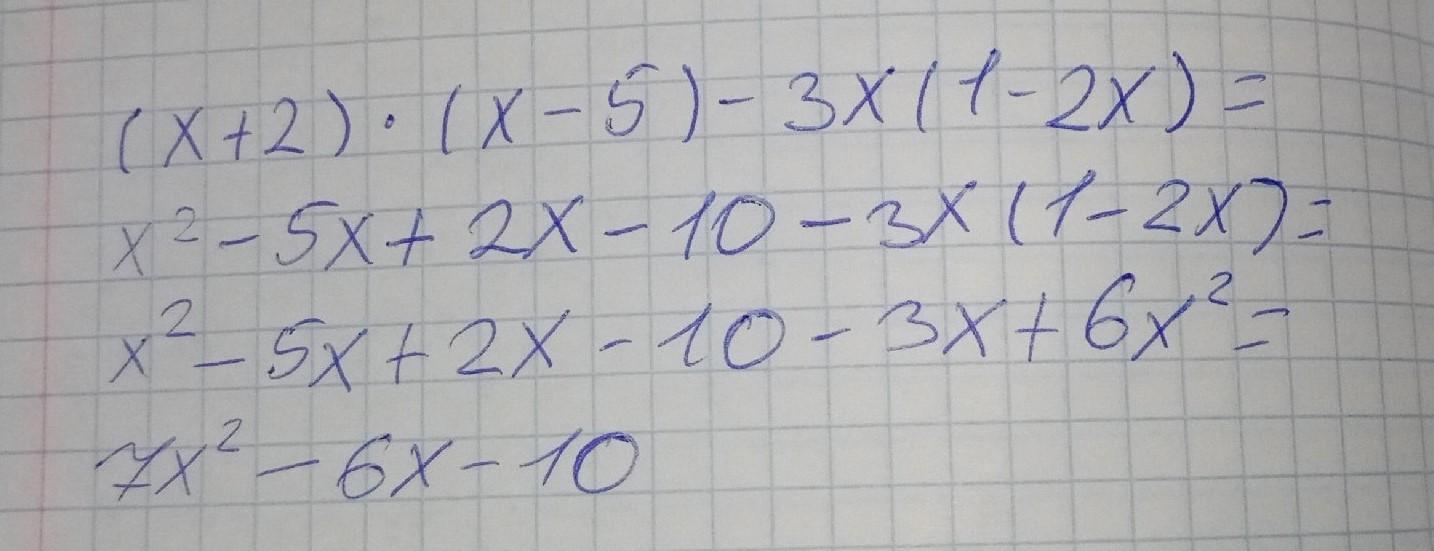 (x+2)·(x-5)-3x(1-2x)=
x²-5x+2x-10-3x(1-2x)=
x²-5x+2x-10-3x+6x²=
7x²-6x-10